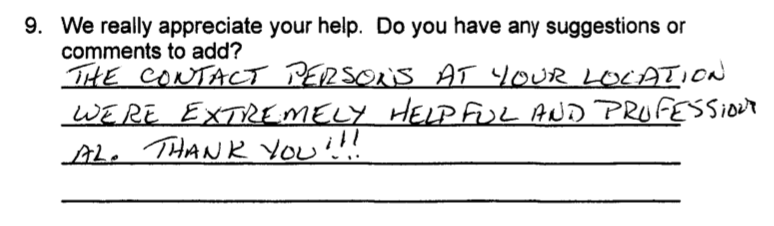 9. We really appreciate your help. Do you have any suggestions or
comments to add?
THE CONTACT PERSONS AT YOUR LOCATION
WERE EXTREMELY HELPFUL AND PROFESSION
AL. THANK YOU!!!